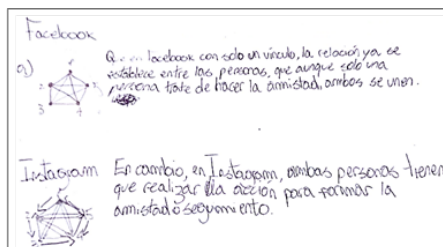 Facebook
a)
facebook con solo un vínculo, la relación ya se
establece entre las personas, que aunque solo una
persona trate de hacer la amistad, ambos se unen.
3
Instagram
En cambio, en Instagram, ambas personas tienen
que realizar la acción para formar la
amistad o seguimiento.